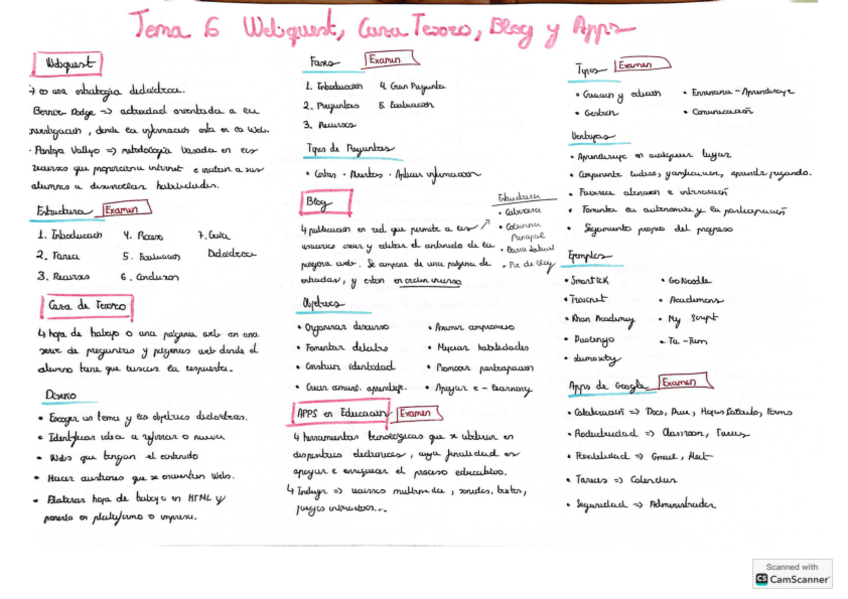 Tema 6 Webquest, Caza Tesoro, Blog y Apps
Webquest
↳ es una estrategia didáctica.
Bernie Dodge => actividad orientada a la
investigación, donde la información está en la Web.
· Pantoja Vallejo => metodología basada en los
recursos que proporciona internet e incitan a sus
alumnos a desarrollar habilidades.
Estructura Examen
1. Introducción 4. Proceso 7. Guía
2. Tarea 5. Evaluación Didáctica
3. Recursos 6. Conclusión
Caza de Tesoro
↳ hoja de trabajo o una página web en una
serie de preguntas y páginas web donde el
alumno tiene que buscar la respuesta.
Diseño
• Escoger un tema y los objetivos didácticos.
• Identificar idea a reforzar o nueva
• Webs que tengan el contenido
• Hacer cuestiones que se encuentren webs.
• Elaborar hoja de trabajo en HTML y
ponerla en plataforma o impresa.
Fases Examen
1. Introducción 4. Gran Pregunta
2. Preguntas 5. Evaluación
3. Recursos
Tipos de Preguntas
• Cortas · Abiertas · Aplicar información
Blog
↳ publicación en red que permite a los
usuarios crear y editar el contenido de la
página web. Se compone de una página de
entradas, y están en orden inverso
Estructura
• Cabecera
• Columna
Principal
• Barra lateral
• Pie de blog
Objetivos
• Organizar discurso • Asumir compromiso
• Fomentar debates • Mejorar habilidades
• Construir identidad • Promover participación
• Crear comunt. aprendizaje. • Apoyar e-learning
APPS en Educación Examen
↳ herramientas tecnológicas que se utilizan en
dispositivos electrónicos, cuya finalidad es
apoyar e enriquecer el proceso educativo.
↳ Incluye => recursos multimedia, sonidos, textos,
juegos interactivos...
Tipos Examen
• Creación y edición • Enseñanza - Aprendizaje
• Gestión • Comunicación
Ventajas
• Aprendizaje en cualquier lugar
• Componente lúdico, gamificación, aprender jugando.
• Favorece atención e interacción
• Fomenta la autonomía y la participación
• Seguimiento propio del progreso
Ejemplos
• Smartick • GoNoodle
• Tinycut • Academons
• Khan Academy • My Script
• Duolingo • Ta-Tum
• Lumosity
Apps de Google Examen
• Colaboración => Docs, Drive, Hojas Cálculo, Forms
• Productividad => Classroom, Tareas
• Flexibilidad => Gmail, Meet
• Tareas => Calendar
• Seguridad => Administrador
Scanned with
CS CamScanner